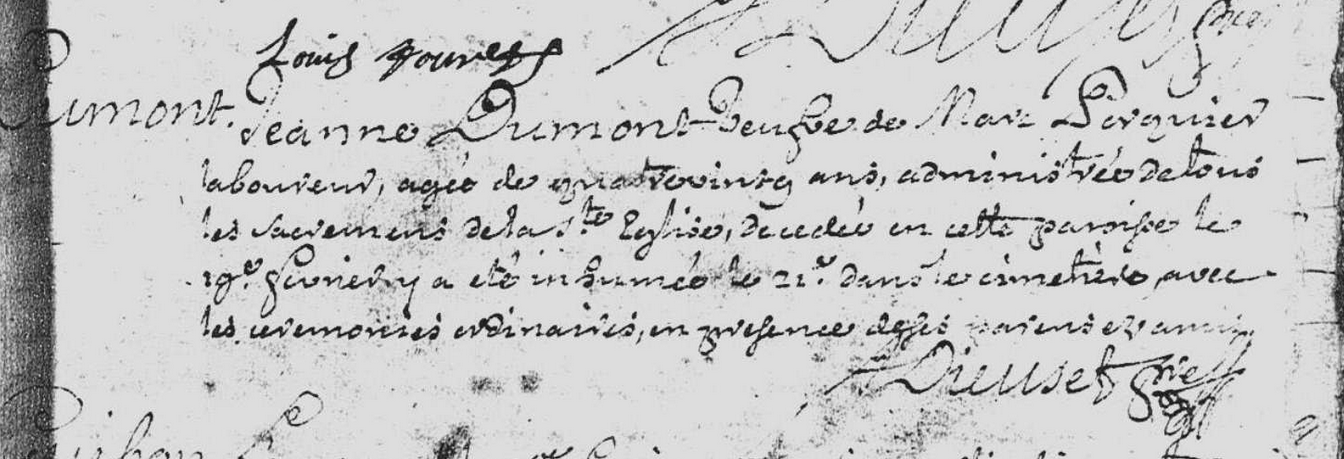 Louis
Dumont. Jeanne Dumont veufve de Marc Perquier
laboureur, ageé de quatrevintg ans, administreé de tous
les sacremens de la Ste Eglise, decedeé en cette paroisse le
19e. fevrier, y a eté inhumeé le 21e. dans le cimetiere, avec
les ceremonies ordinaires, en presence de ses parens et amis,
Dieuset